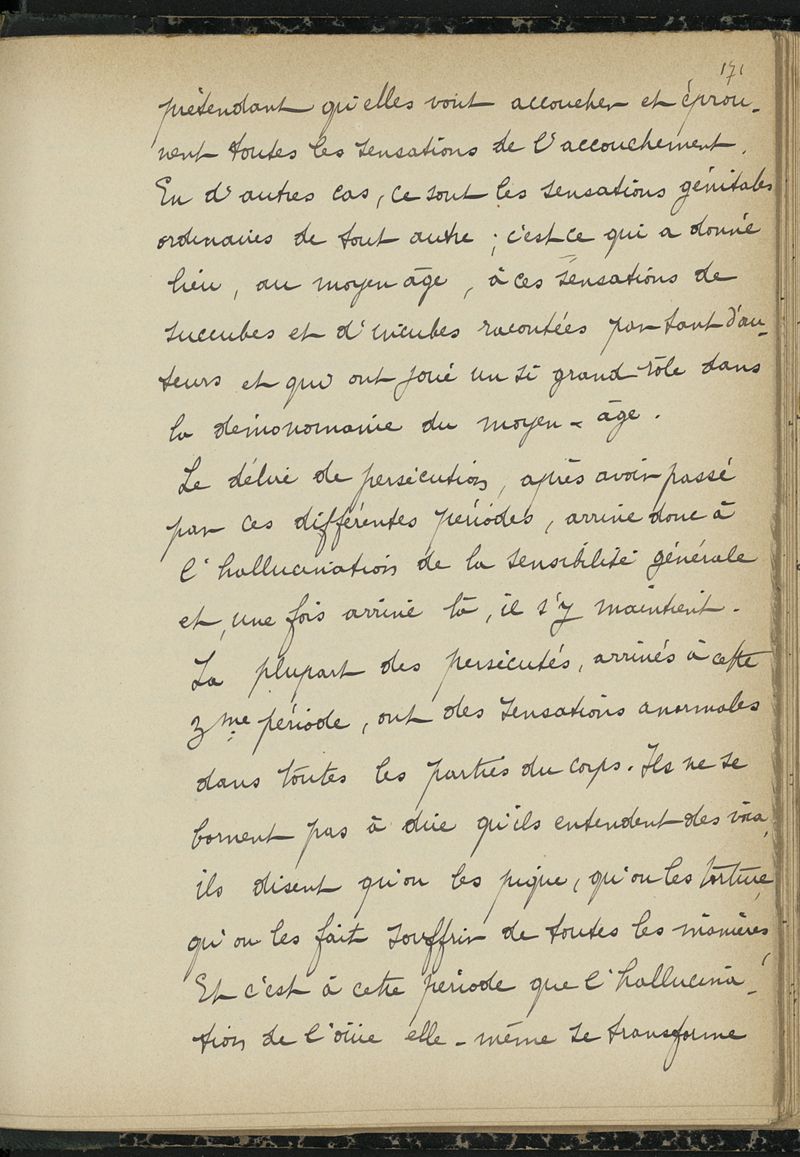 171
prétendant qu'elles vont accoucher et éprou-
vent toutes les sensations de l'accouchement.
En d'autres cas, ce sont les sensations génitales
ordinaires de tout autre ; c'est ce qui a donné
lieu, au moyen âge, à ces sensations de
succubes et d'incubes racontées par tant d'au-
teurs et qui ont joué un si grand rôle dans
la démonomanie du moyen-âge.
Le délire de persécution, après avoir passé
par ces différentes périodes, arrive donc à
l'hallucination de la sensibilité générale
et, une fois arrivé là, il s'y maintient.
La plupart des persécutés, arrivés à cette
3me période, ont des sensations anormales
dans toutes les parties du corps. Ils ne se
bornent pas à dire qu'ils entendent des voix,
ils disent qu'on les pique, qu'on les torture,
qu'on les fait souffrir de toutes les manières.
Et c'est à cette période que l'hallucina-
tion de l'ouïe elle-même se transforme